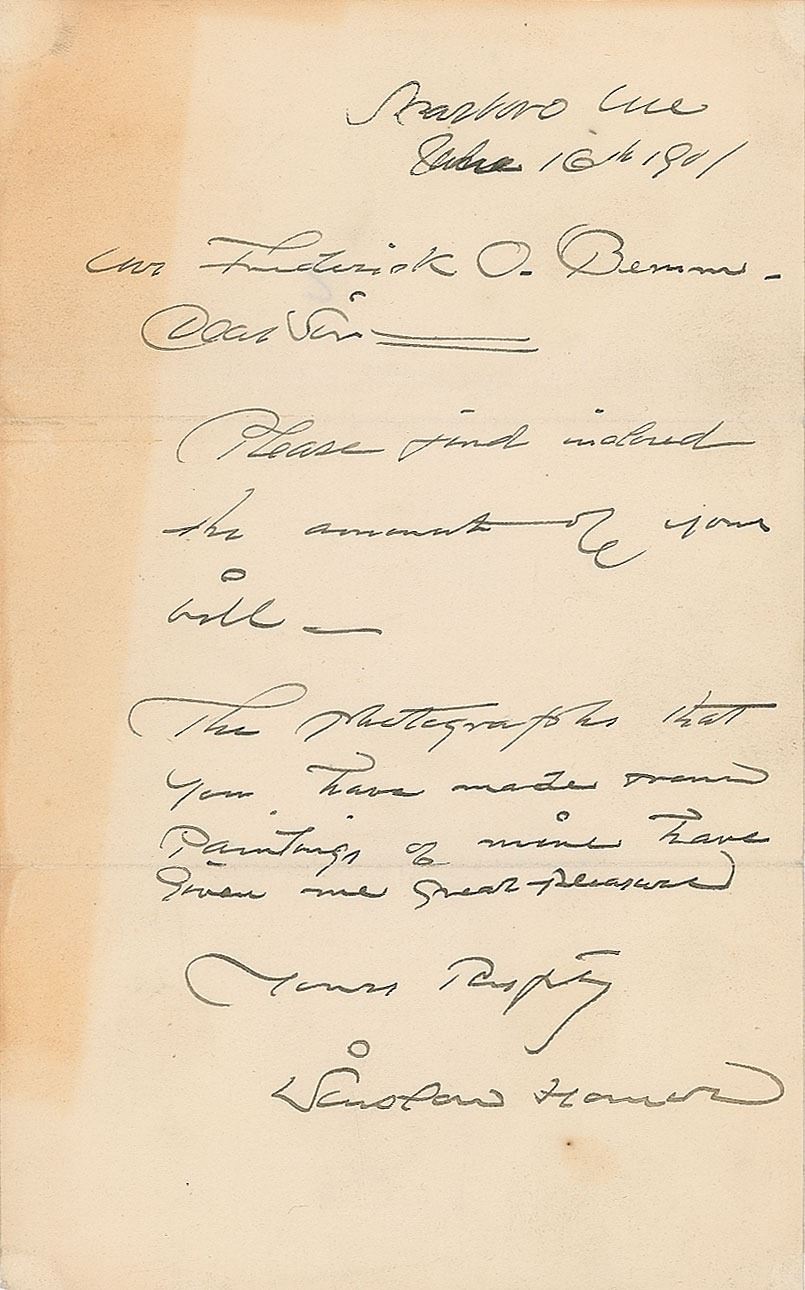 Scarboro Me
16th 1901
Mr Frederick O. Bemm -
Dear Sir
Please find inclosed
the amount of your
bill —
The photographs that
you have made from
Paintings of mine have
given me great pleasure
Yours Respty
Winslow Homer